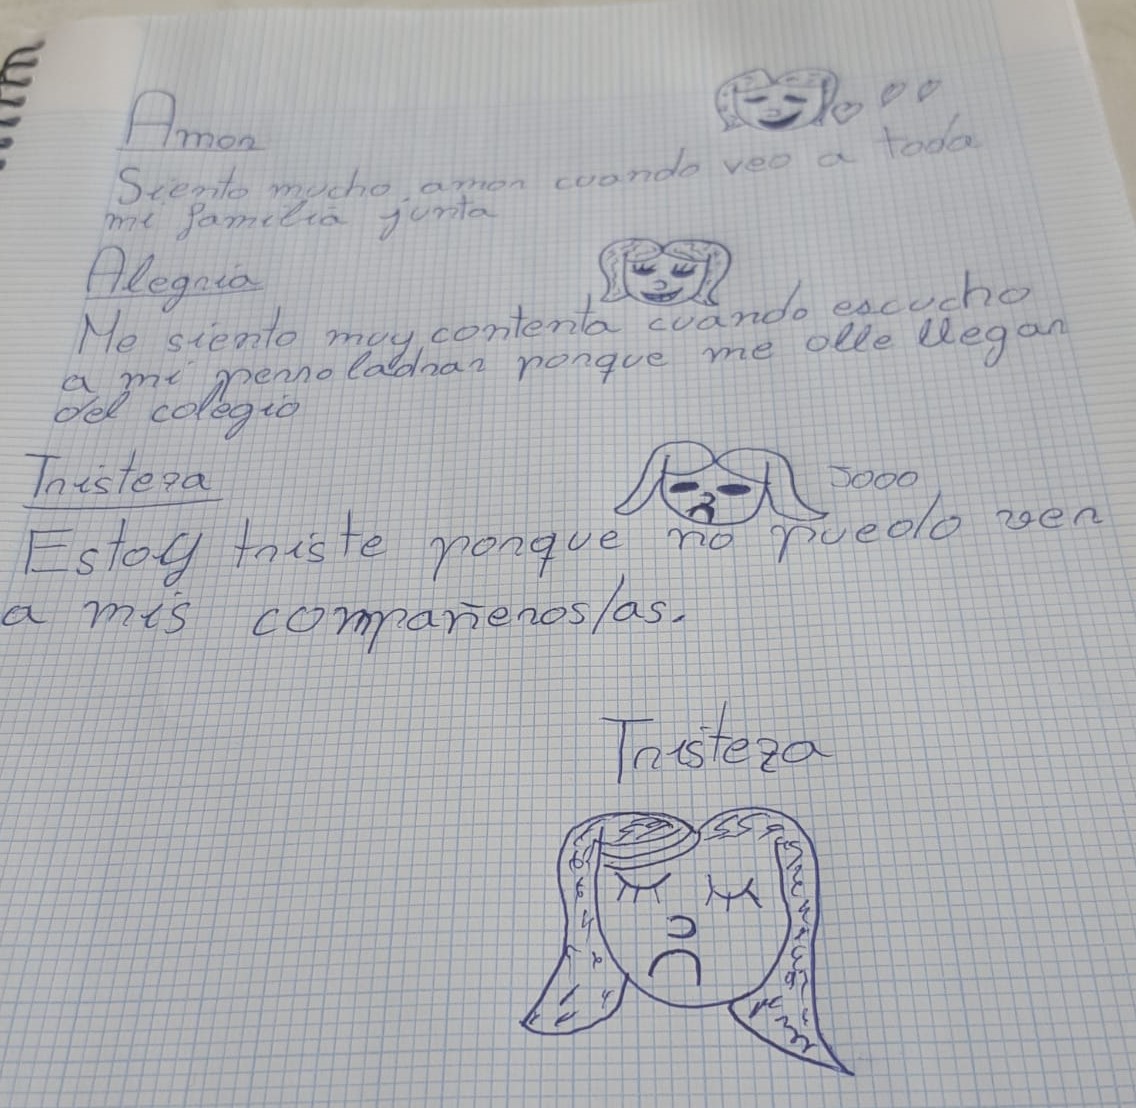 Amor
Siento mucho amor cuando veo a toda
mi familia junta
Alegria
Me siento muy contenta cuando escucho
a mi perro ladrar porque me olle llegar
del colegio
Tristeza
Jooo
Estoy triste porque no puedo ver
a mis compañeros/as.
Tristeza